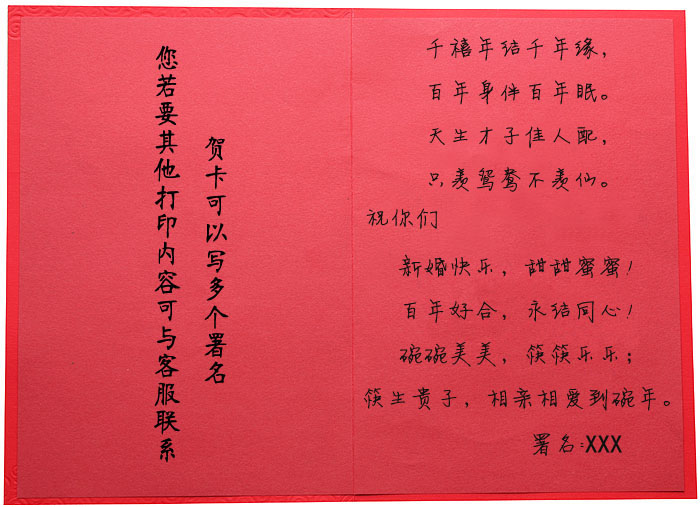 贺卡可以写多个署名
您若要其他打印内容可与客服联系
千禧年结千年缘，
百年身伴百年眠。
天生才子佳人配，
只羡鸳鸯不羡仙。
祝你们
新婚快乐，甜甜蜜蜜！
百年好合，永结同心！
碗碗美美，筷筷乐乐；
筷生贵子，相亲相爱到碗年。
署名：XXX